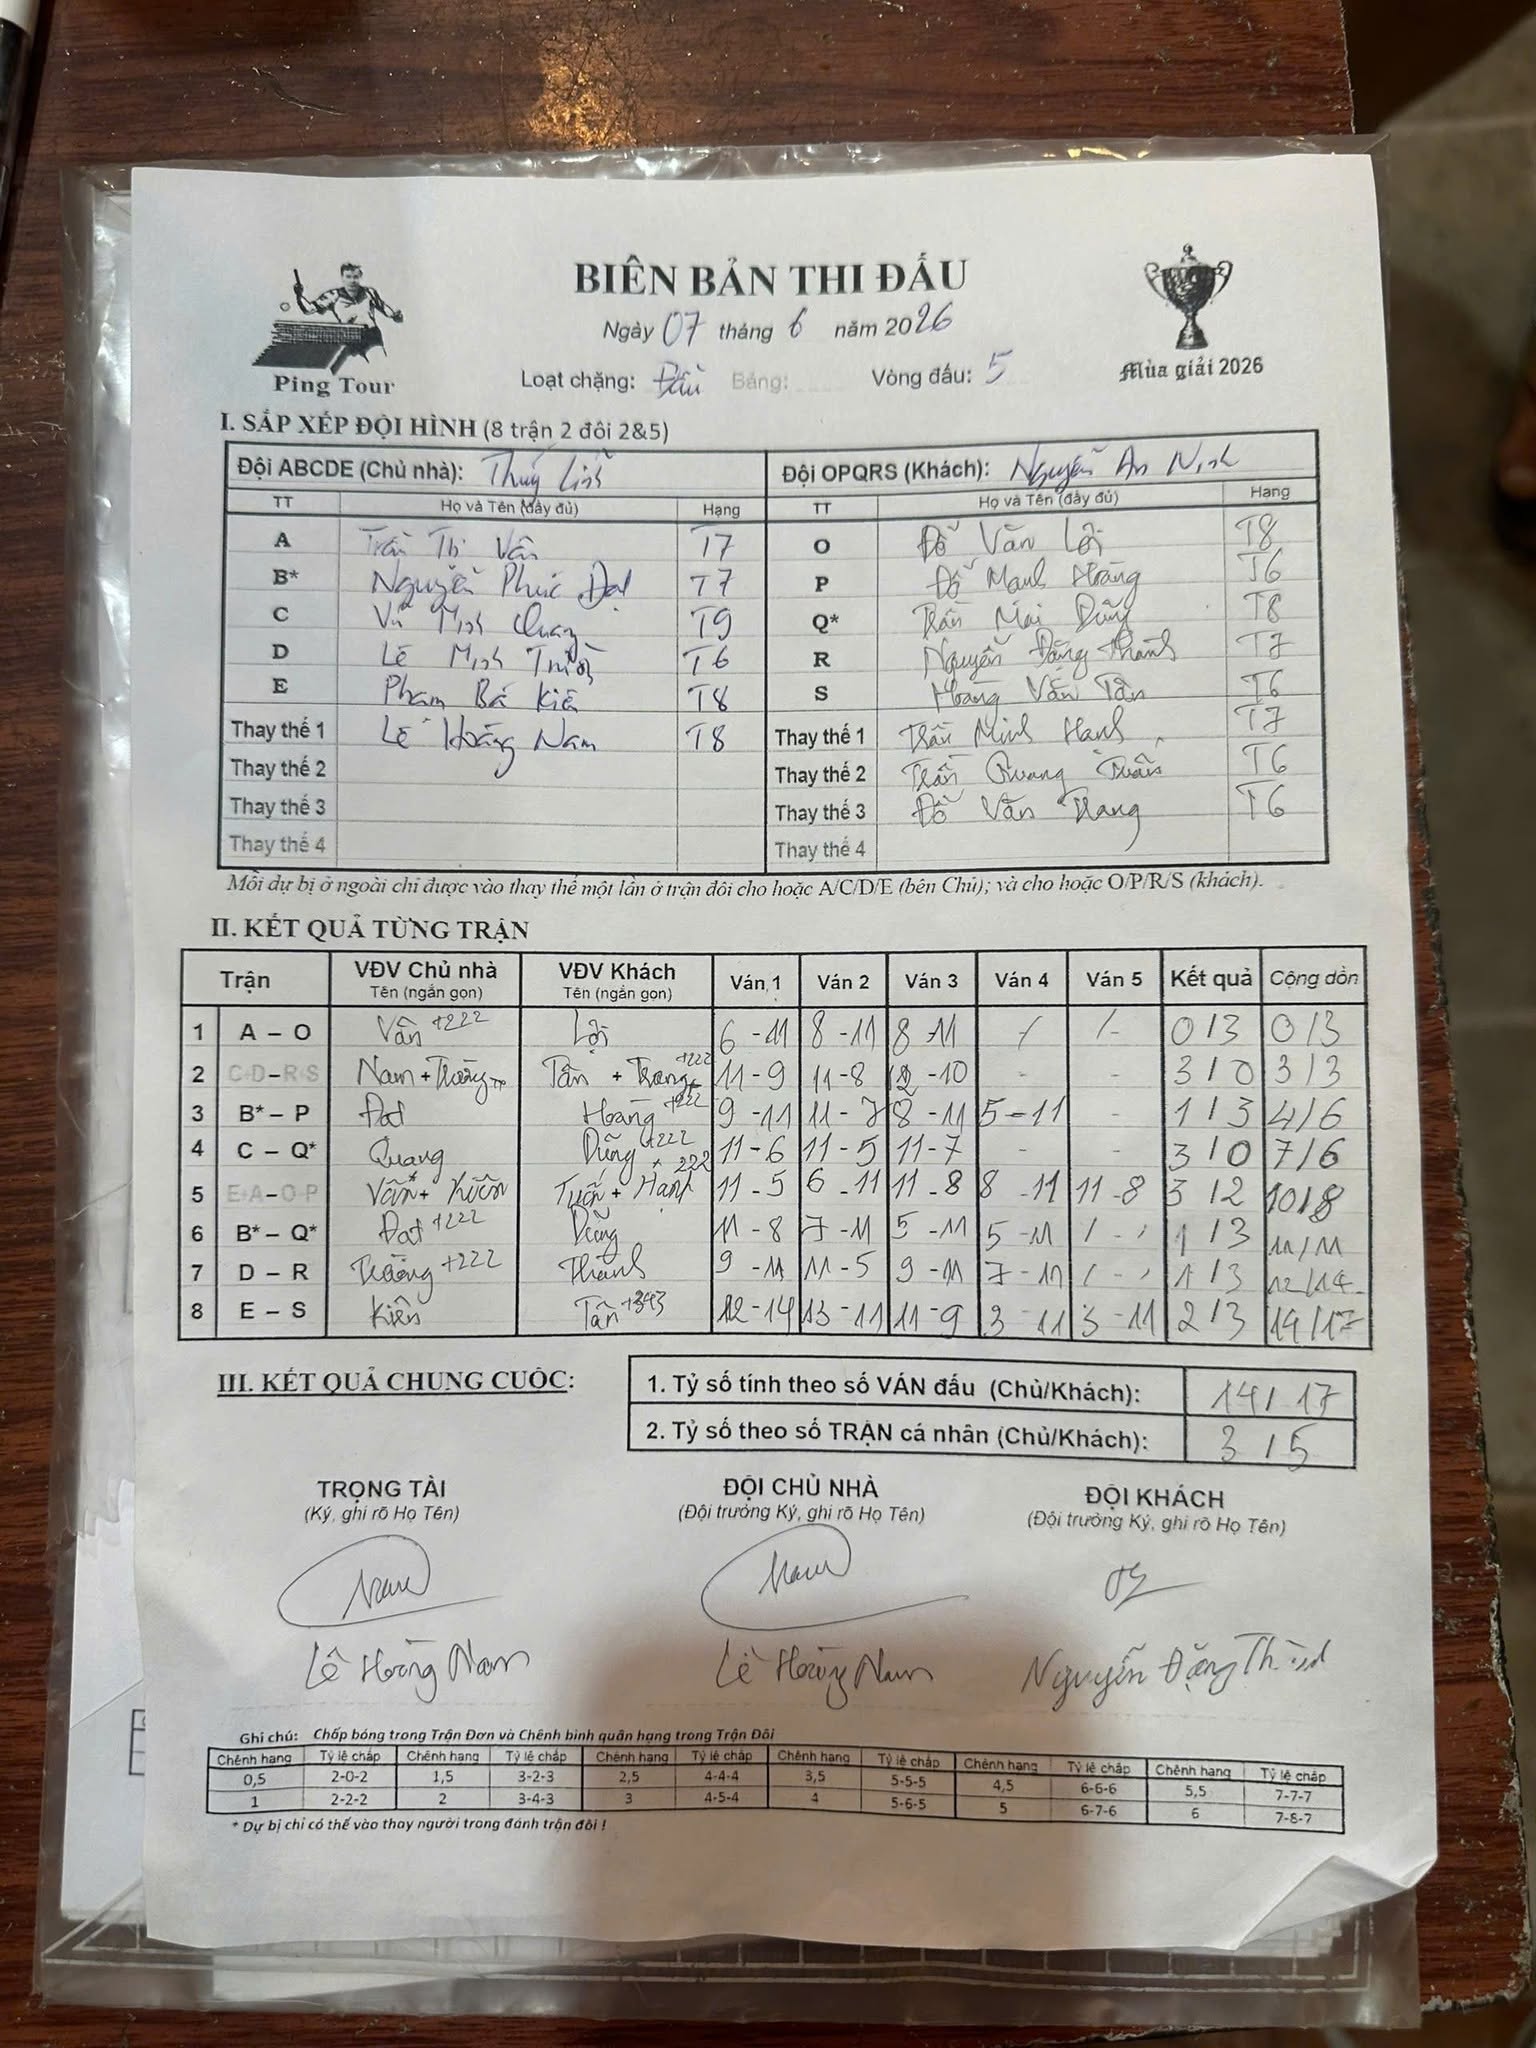 BIÊN BẢN THI ĐẤU
Ngày 07 tháng 6 năm 2026
Ping Tour
Mùa giải 2026
Loạt chặng: Đấu Bảng: Vòng đấu: 5
I. SẮP XẾP ĐỘI HÌNH (8 trận 2 đôi 2&5)
Đội ABCDE (Chủ nhà): Thúy Linh Đội OPQRS (Khách): Nguyễn An Ninh
TT Họ và Tên (đầy đủ) Hạng TT Họ và Tên (đầy đủ) Hạng
A Trần Thị Vân T7 O Đỗ Văn Lợi T8
B* Nguyễn Phúc Đạt T7 P Đỗ Mạnh Hoàng T6
C Vũ Minh Quang T9 Q* Trần Mai Dũng T8
D Lê Minh T6 R Nguyễn Đặng Thành T7
E Phạm Bá Kiên T8 S Hoàng Văn Tân T6
Thay thế 1 Lê Hoàng Nam T8 Thay thế 1 Trần Minh Hạnh T7
Thay thế 2 Thay thế 2 Trần Quang Tuấn T6
Thay thế 3 Thay thế 3 Đỗ Văn Trang T6
Thay thế 4 Thay thế 4
Mỗi dự bị ở ngoài chỉ được vào thay thế một lần ở trận đôi cho hoặc A/C/D/E (bên Chủ); và cho hoặc O/P/R/S (khách).
II. KẾT QUẢ TỪNG TRẬN
Trận VĐV Chủ nhà Tên (ngắn gọn) VĐV Khách Tên (ngắn gọn) Ván 1 Ván 2 Ván 3 Ván 4 Ván 5 Kết quả Cộng dồn
1 A – O Vân +222 Lợi 6 - 11 8 - 11 8 - 11 / / 0 / 3 0 / 3
2 C+D – R+S Nam + Trường Tân + Trang +222 11 - 9 11 - 8 12 - 10 - - 3 / 0 3 / 3
3 B* – P Đạt Hoàng +222 9 - 11 11 - 7 8 - 11 5 - 11 - 1 / 3 4 / 6
4 C – Q* Quang Dũng +222 11 - 6 11 - 5 11 - 7 - - 3 / 0 7 / 6
5 E+A – O+P Vân + Kiên Tuấn + Hạnh +222 11 - 5 6 - 11 11 - 8 8 - 11 11 - 8 3 / 2 10 / 8
6 B* – Q* Đạt +222 Dũng 11 - 8 7 - 11 5 - 11 5 - 11 / - / 1 / 3 11 / 11
7 D – R Trường +222 Thành 9 - 11 11 - 5 9 - 11 7 - 11 / - / 1 / 3 12 / 14
8 E – S Kiên Tân +343 12 - 14 13 - 11 11 - 9 3 - 11 3 - 11 2 / 3 14 / 17
III. KẾT QUẢ CHUNG CUỘC:
1. Tỷ số tính theo số VÁN đấu (Chủ/Khách): 14 / 17
2. Tỷ số theo số TRẬN cá nhân (Chủ/Khách): 3 / 5
TRỌNG TÀI ĐỘI CHỦ NHÀ ĐỘI KHÁCH
(Ký, ghi rõ Họ Tên) (Đội trưởng Ký, ghi rõ Họ Tên) (Đội trưởng Ký, ghi rõ Họ Tên)
Nam Nam
Lê Hoàng Nam Lê Hoàng Nam Nguyễn Đặng Thành
Ghi chú: Chấp bóng trong Trận Đơn và Chênh bình quân hạng trong Trận Đôi
Chênh hạng Tỷ lệ chấp Chênh hạng Tỷ lệ chấp Chênh hạng Tỷ lệ chấp Chênh hạng Tỷ lệ chấp Chênh hạng Tỷ lệ chấp Chênh hạng Tỷ lệ chấp
0,5 2-0-2 1,5 3-2-3 2,5 4-4-4 3,5 5-5-5 4,5 6-6-6 5,5 7-7-7
1 2-2-2 2 3-4-3 3 4-5-4 4 5-6-5 5 6-7-6 6 7-8-7
* Dự bị chỉ có thể vào thay người trong đánh trận đôi !